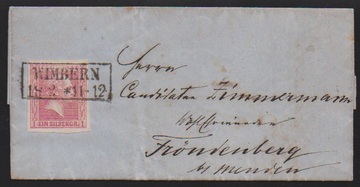 WIMBERN
18 2 * 11-12
1 EIN SILBERGR. 1
Herrn
Candidaten Zimmermann
Fröndenberg
b/ Menden